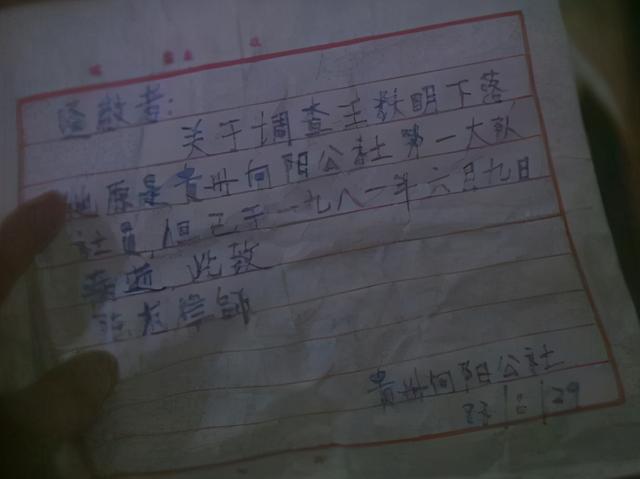 敬启者:
关于调查王秋明下落
他原是贵州向阳公社第一大队
社员,但已于一九八一年六月九日
病逝,此致
律师
贵州向阳公社
29